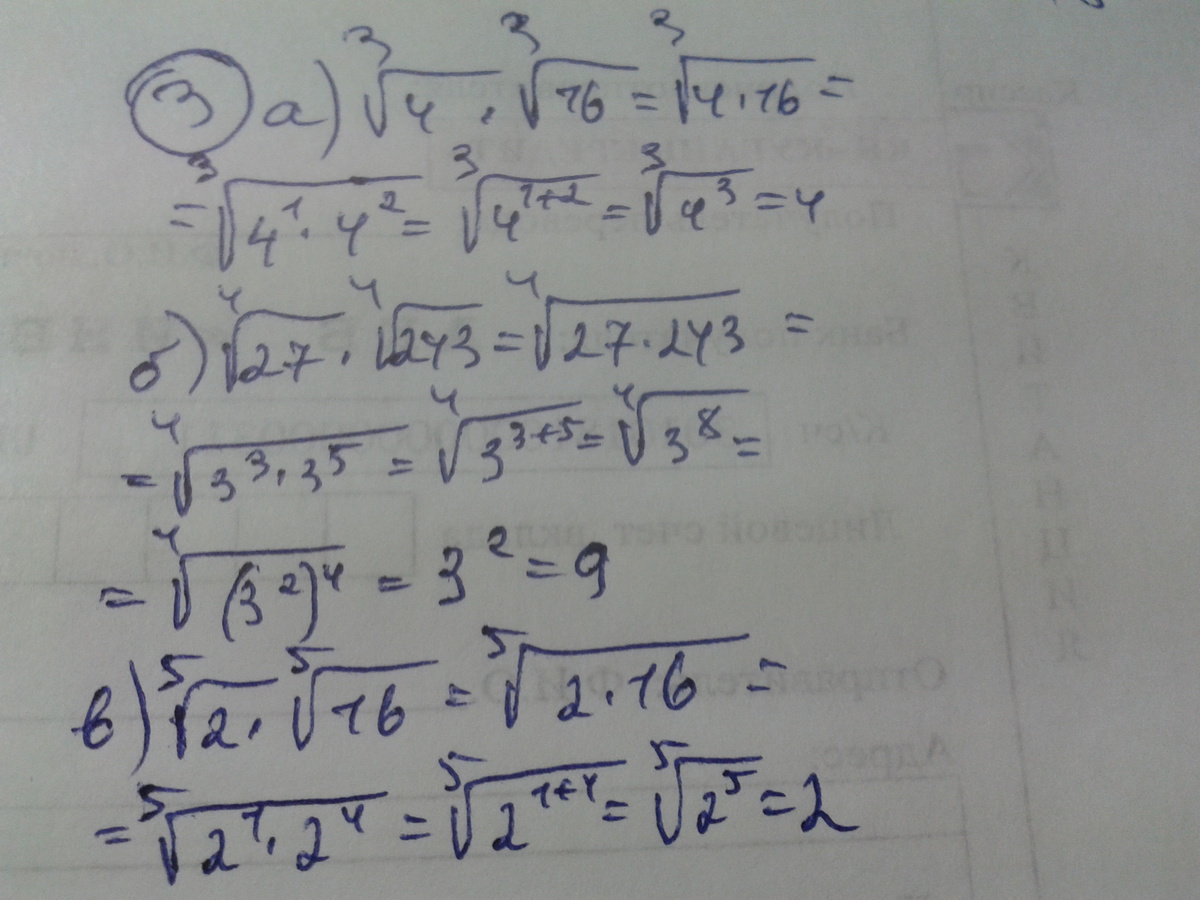 3 а) ∛4 · ∛16 = ∛(4·16) =
= ∛(4¹·4²) = ∛(4¹⁺²) = ∛(4³) = 4
б) ∜27 · ∜243 = ∜(27·243) =
= ∜(3³·3⁵) = ∜(3³⁺⁵) = ∜(3⁸) =
= ∜((3²)⁴) = 3² = 9
в) ⁵√2 · ⁵√16 = ⁵√(2·16) =
= ⁵√(2¹·2⁴) = ⁵√(2¹⁺⁴) = ⁵√(2⁵) = 2